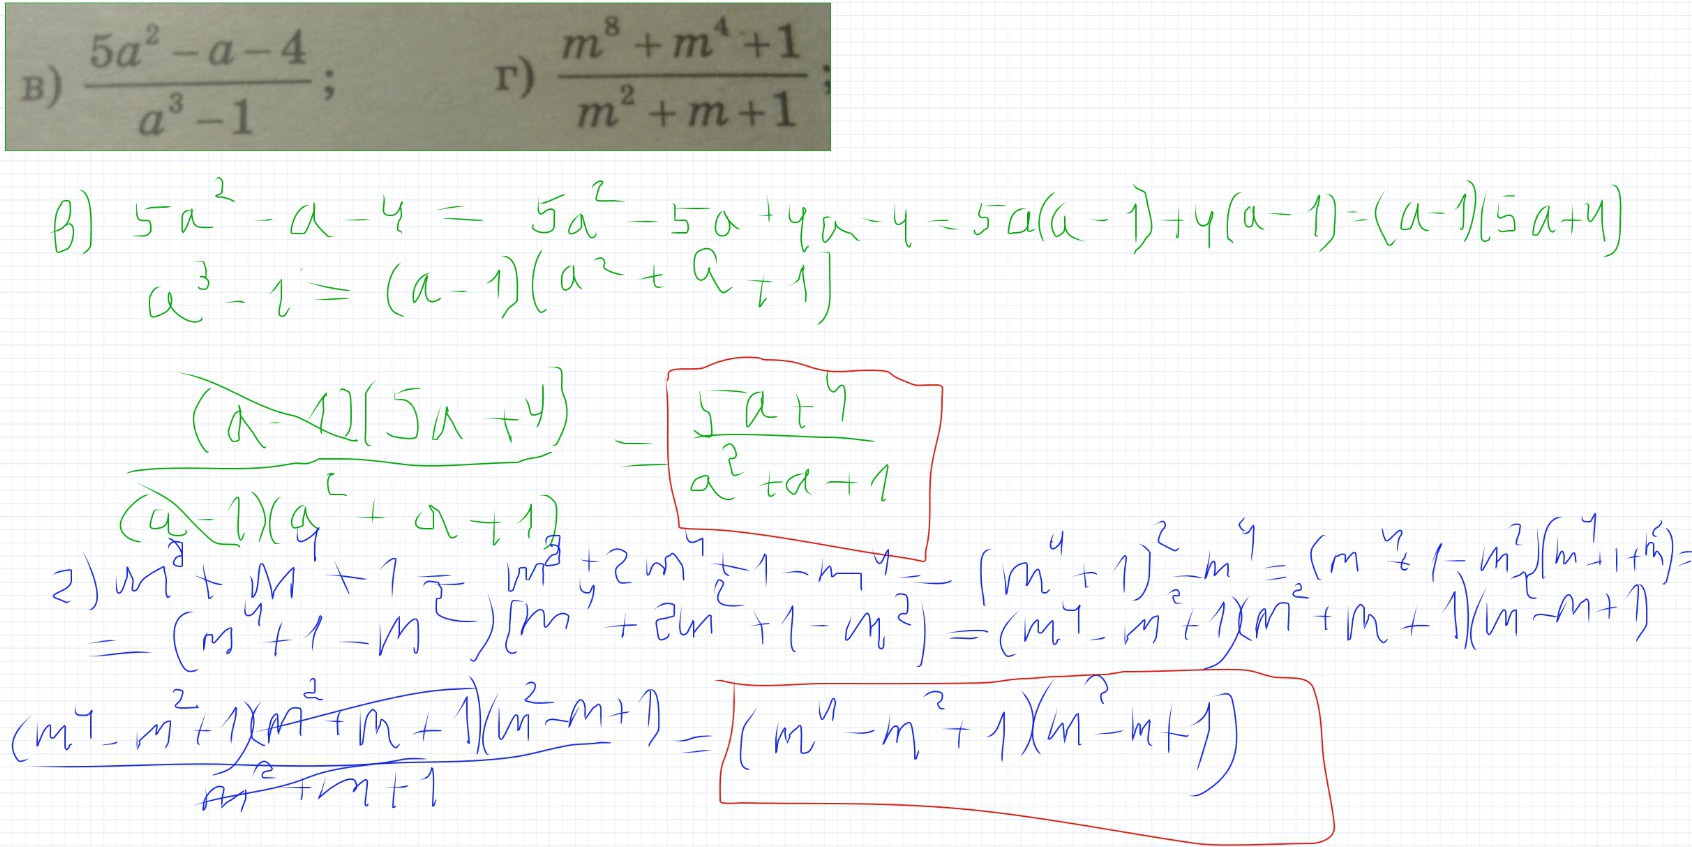 в) (5a² − a − 4)/(a³ − 1); г) (m⁸ + m⁴ + 1)/(m² + m + 1);
в) 5a² - a - 4 = 5a² - 5a + 4a - 4 = 5a(a - 1) + 4(a - 1) = (a-1)(5a+4)
a³ - 1 = (a - 1)(a² + a + 1)
(a - 1)(5a + 4)/(a - 1)(a² + a + 1) = (5a + 4)/(a² + a + 1)
г) m⁸ + m⁴ + 1 = m⁸ + 2m⁴ + 1 - m⁴ = (m⁴ + 1)² - m⁴ = (m⁴ + 1 - m²)(m⁴ + 1 + m²) =
= (m⁴ + 1 - m²)(m⁴ + 2m² + 1 - m²) = (m⁴ - m² + 1)(m² + m + 1)(m² - m + 1)
(m⁴ - m² + 1)(m² + m + 1)(m² - m + 1)/m² + m + 1 = (m⁴ - m² + 1)(m² - m + 1)